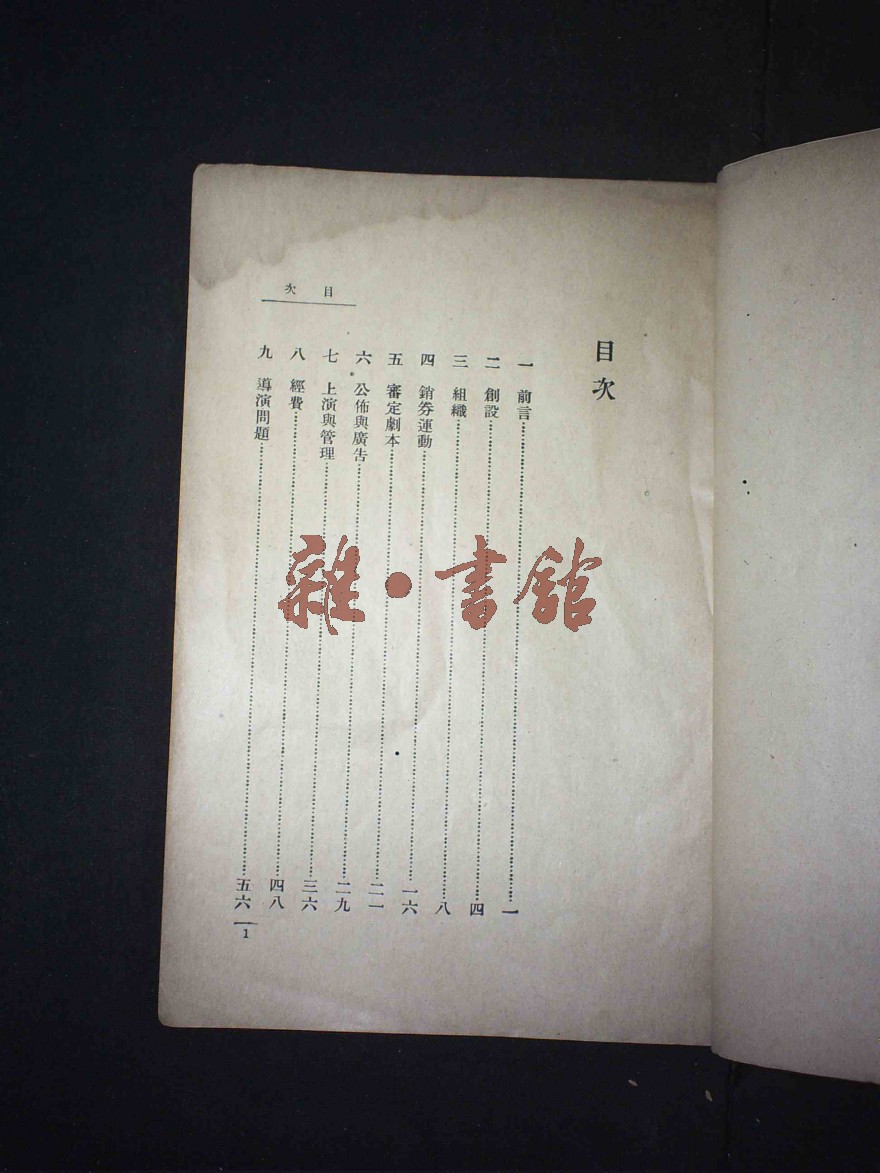 目次
一 前言……一
二 創設……四
三 組織……八
四 銷券運動……一六
五 審定劇本……二一
六 公佈與廣告……二九
七 上演與管理……三六
八 經費……四八
九 導演問題……五六
目次
1
雜·書館